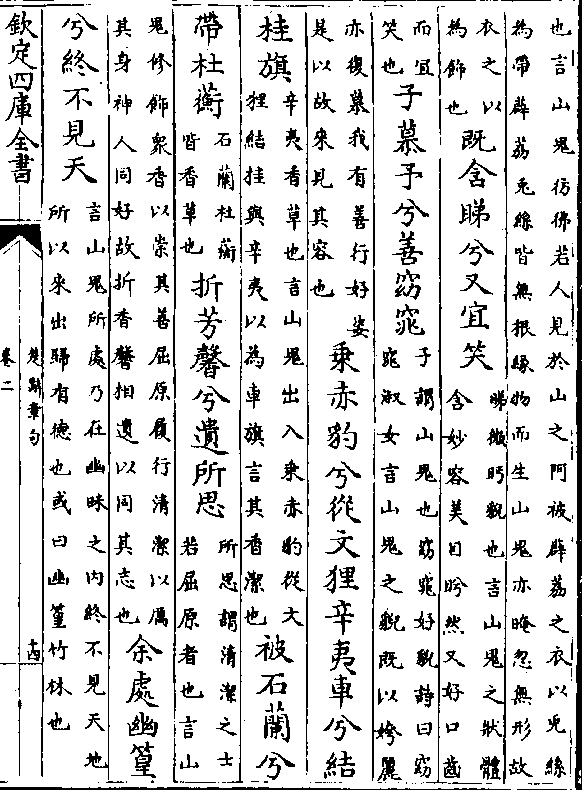 也言山鬼彷彿若人見於山之阿被薜荔之衣以兎絲
為帶薜荔兎絲皆無根緣物而生山鬼亦晻忽無形故
衣之以
為飾也
既含睇兮又宜笑
睇微眄貌也言山鬼之狀體
含妙容美目盼然又好口齒
而宜
笑也
子慕予兮善窈窕
子謂山鬼也窈窕好貌詩曰窈
窕淑女言山鬼之貌既以姱麗
亦復慕我有善行好姿
是以故來見其容也
乘赤豹兮從文狸辛夷車兮結
桂旗
辛夷香草也言山鬼出入乘赤豹從文
狸結桂與辛夷以為車旗言其香潔也
被石蘭兮
帶杜蘅
石蘭杜蘅
皆香草也
折芳馨兮遺所思
所思謂清潔之士
若屈原者也言山
鬼修飾衆香以崇其善屈原履行清潔以厲
其身神人同好故折香馨相遺以同其志也
余處幽篁
兮終不見天
言山鬼所處乃在幽昧之內終不見天地
所以來出歸有德也或曰幽篁竹林也
欽定四庫全書
楚辭章句
卷二
十四